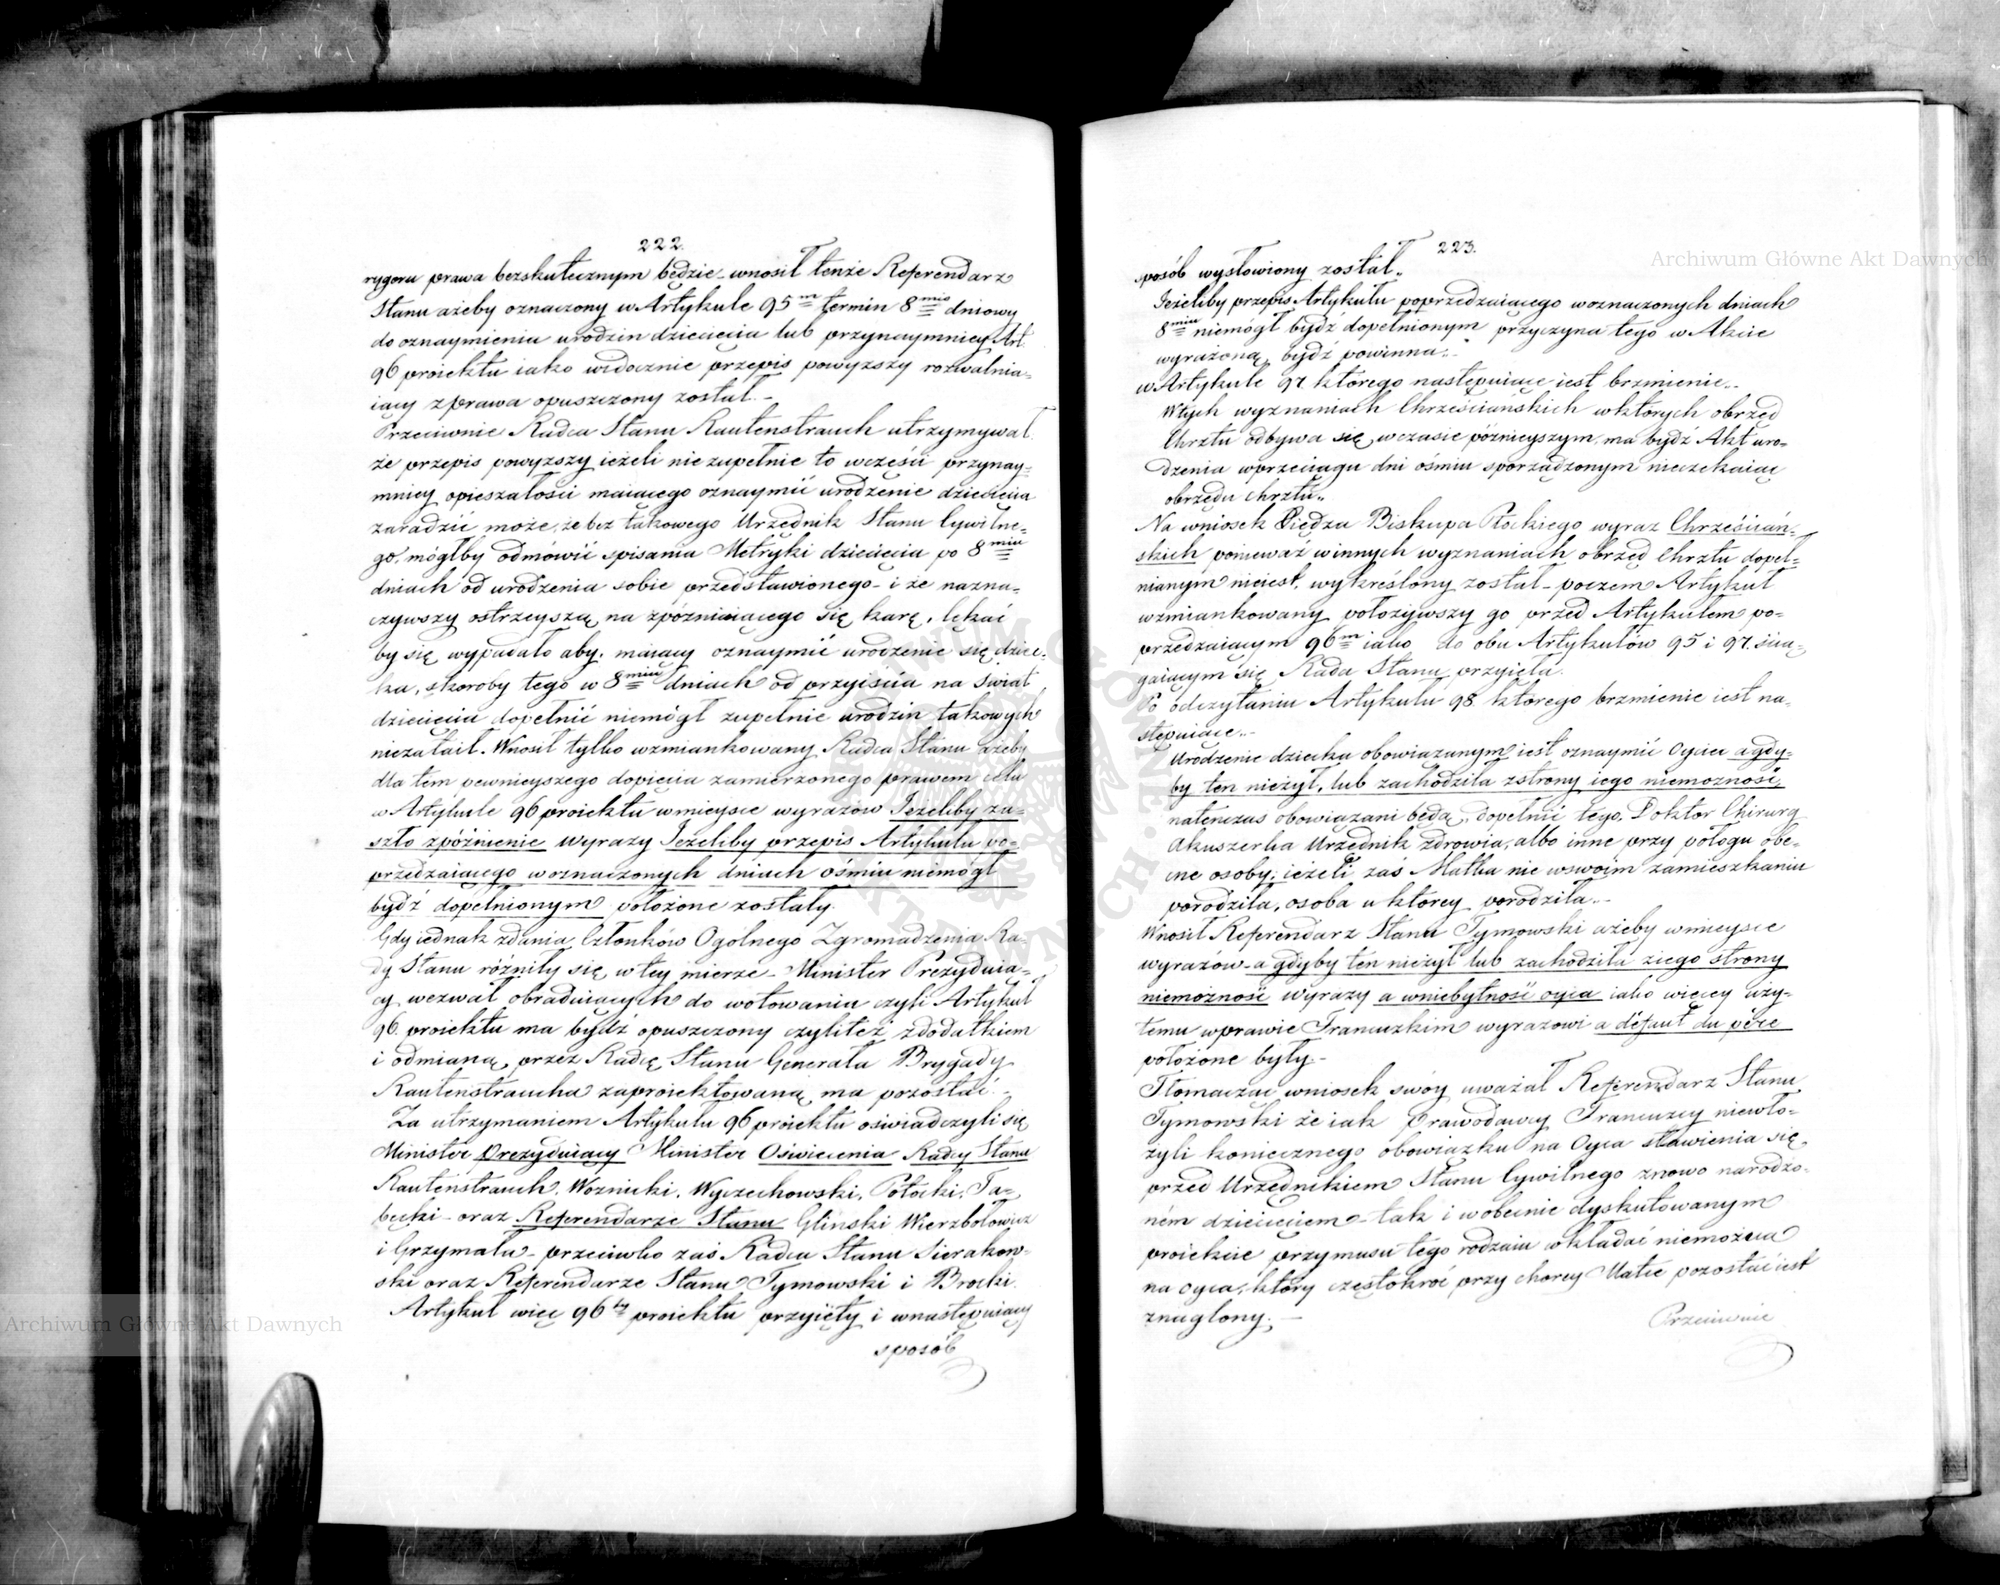 222.
rygoru prawa bezskutecznym będzie – wnosił tenże Referendarz
Stanu ażeby oznaczony w Artykule 95m termin 8mio dniowy
do oznaymienia urodzin dziecięcia lub przynaymniey Art.
96 proiektu iako widocznie przepis powyższy rozwalnia-
iący z prawa opuszczony został. –
Przeciwnie Radca Stanu Rautenstrauch utrzymywał
że przepis powyższy ieżeli nie zupełnie to w części przynay-
mniey opieszałości maiącego oznaymić urodzenie dziecięcia
zaradzić może, że bez takowego Urzędnik Stanu Cywilne-
go, mógłby odmówić spisania Metryki dziecięcia po 8miu
dniach od urodzenia sobie przedstawionego – i że nazna-
czywszy ostrzeyszą na zpóźniaiącego się karę, lękać
by się wypadało aby, maiący oznaymić urodzenie się dziec-
ka, skoroby tego w 8miu dniach od przyiścia na świat
dziecięcia dopełnić niemógł zupełnie urodzin takowych
niezataił. Wnosił tylko wzmiankowany Radca Stanu ażeby
dla tem pewnieyszego dopięcia zamierzonego prawem celu
w Artykule 96 proiektu w mieysce wyrazów Jeżeliby za-
szło zpóźnienie wyrazy Jeżeliby przepis Artykułu po-
przedzaiącego w oznaczonych dniach ośmiu niemógł
bydź dopełnionym położone zostały.
Gdy iednak zdania Członków Ogólnego Zgromadzenia Ra-
dy Stanu różniły się w tey mierze – Minister Prezyduią-
cy wezwał obraduiących do wotowania czyli Artykuł
96. proiektu ma bydź opuszczony czyli też z dodatkiem
i odmianą przez Radcę Stanu Generała Brygady
Rautenstraucha zaproiektowaną ma pozostać. –
Za utrzymaniem Artykułu 96 proiektu oświadczyli się
Minister Prezyduiący Minister Oświecenia Radcy Stanu
Rautenstrauch, Woznicki, Wyczechowski, Potocki, Ja-
bęcki – oraz Referendarze Stanu Gliński Wierzbołowicz
i Grzymała – przeciwko zaś Radca Stanu Sierakow-
ski oraz Referendarze Stanu Tymowski i Brocki.
Artykuł więc 96ty proiektu przyięty i w następuiący
sposób
223.
sposób wysłowiony został„
Jeżeliby przepis Artykułu poprzedzaiącego w oznaczonych dniach
8miu niemógł bydź dopełnionym przyczyna tego w Akcie
wyrażoną bydź powinna„ –
w Artykule 97. którego następuiące iest brzmienie„
W tych wyznaniach Chrześciańskich w których obrzęd
Chrztu odbywa się w czasie późnieyszym, ma bydź Akt uro-
dzenia w przeciągu dni ośmiu sporządzonym nieczekaiąc
obrzędu chrztu„
Na wniosek Xiędza Biskupa Płockiego wyraz Chrześciań-
skich ponieważ w innych wyznaniach obrzęd Chrztu dopeł-
nianym nieiest, wykreślony został – poczem Artykuł
wzmiankowany położywszy go przed Artykułem po-
przedzaiącym 96m iako do obu Artykułów 95 i 97. ścią-
gaiącym się Rada Stanu przyięła.
Po odczytaniu Artykułu 98. którego brzmienie iest na-
stępuiące„
Urodzenie dziecka obowiązanym iest oznaymić Oyciec a gdy-
by ten nieżył, lub zachodziła z strony iego niemożność,
natenczas obowiązani będą, dopełnić tego, Doktor Chirurg
Akuszerka Urzędnik zdrowia, albo inne przy połogu obe-
cne osoby; ieżeli zaś Matka nie w swoim zamieszkaniu
porodziła, osoba u którey porodziła„ –
Wnosił Referendarz Stanu Tymowski ażeby w mieysce
wyrazów – a gdyby ten nieżył lub zachodziła z iego strony
niemożność wyrazy a w niebytność oyca iako więcey uży-
temu w prawie Francuzkim wyrazowi a défaut du père
położone były. –
Tłomacząc wniosek swóy uważał Referendarz Stanu
Tymowski że iak Prawodawcy Francuzcy niewło-
żyli koniecznego obowiązku na Oyca stawienia się
przed Urzędnikiem Stanu Cywilnego z nowo narodzo-
ném dziecięciem – tak i w obecnie dyskutowanym
proiekcie przymusu tego rodzaiu wkładać niemożna
na oyca, który częstokroć przy chorey Matce pozostać iest
znaglony. –
Przeciwnie
Archiwum Główne Akt Dawnych
Archiwum Główne Akt Dawnych